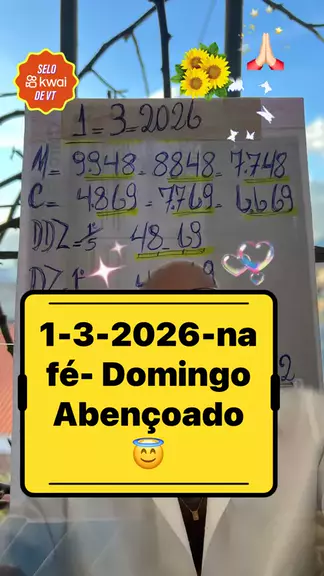 SELO
kwai
DE VT
1=3=2026
M= 9948= 8848= 7.748
C= 4.869= 7.769= 6.669
DDZ=1/5 48-69
DZ 1º
2
1-3-2026-na
fé- Domingo
Abençoado